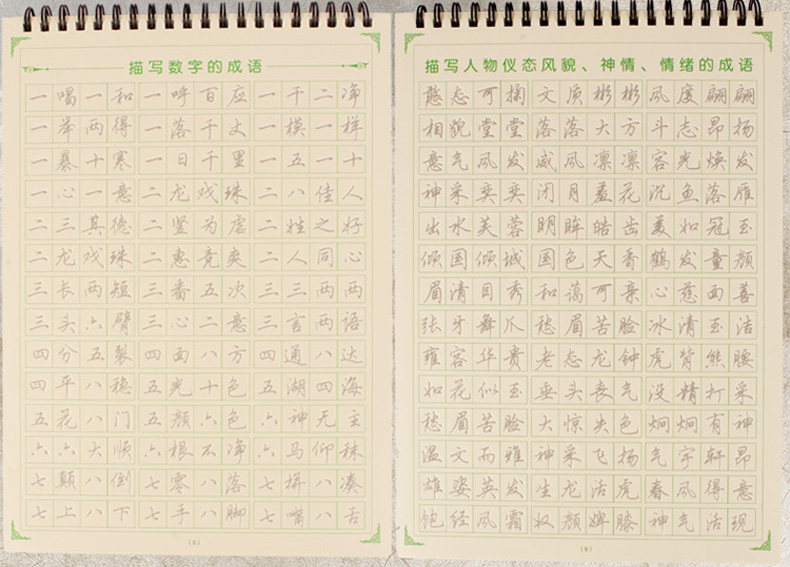 描写数字的成语
一唱一和 一呼百应 一干二净
一举两得 一落千丈 一模一样
一暴十寒 一日千里 一五一十
一心一意 二龙戏珠 二八佳人
二三其德 二竖为虐 二姓之好
二龙戏珠 二惠竞爽 二人同心
三长两短 三番五次 三三两两
三头六臂 三心二意 三言两语
四分五裂 四面八方 四通八达
四平八稳 五光十色 五湖四海
五花八门 五颜六色 六神无主
六六大顺 六根不净 六马仰秣
七颠八倒 七零八落 七拼八凑
七上八下 七手八脚 七嘴八舌
(5)
描写人物仪态风貌、神情、情绪的成语
憨态可掬 文质彬彬 风度翩翩
相貌堂堂 落落大方 斗志昂扬
意气风发 威风凛凛 容光焕发
神采奕奕 闭月羞花 沉鱼落雁
出水芙蓉 明眸皓齿 美如冠玉
倾国倾城 国色天香 鹤发童颜
眉清目秀 和蔼可亲 心慈面善
张牙舞爪 愁眉苦脸 冰清玉洁
雍容华贵 老态龙钟 虎背熊腰
如花似玉 垂头丧气 没精打采
愁眉苦脸 大惊失色 炯炯有神
温文而雅 神采飞扬 气宇轩昂
雄姿英发 生龙活虎 春风得意
饱经风霜 奴颜婢膝 神气活现
(9)